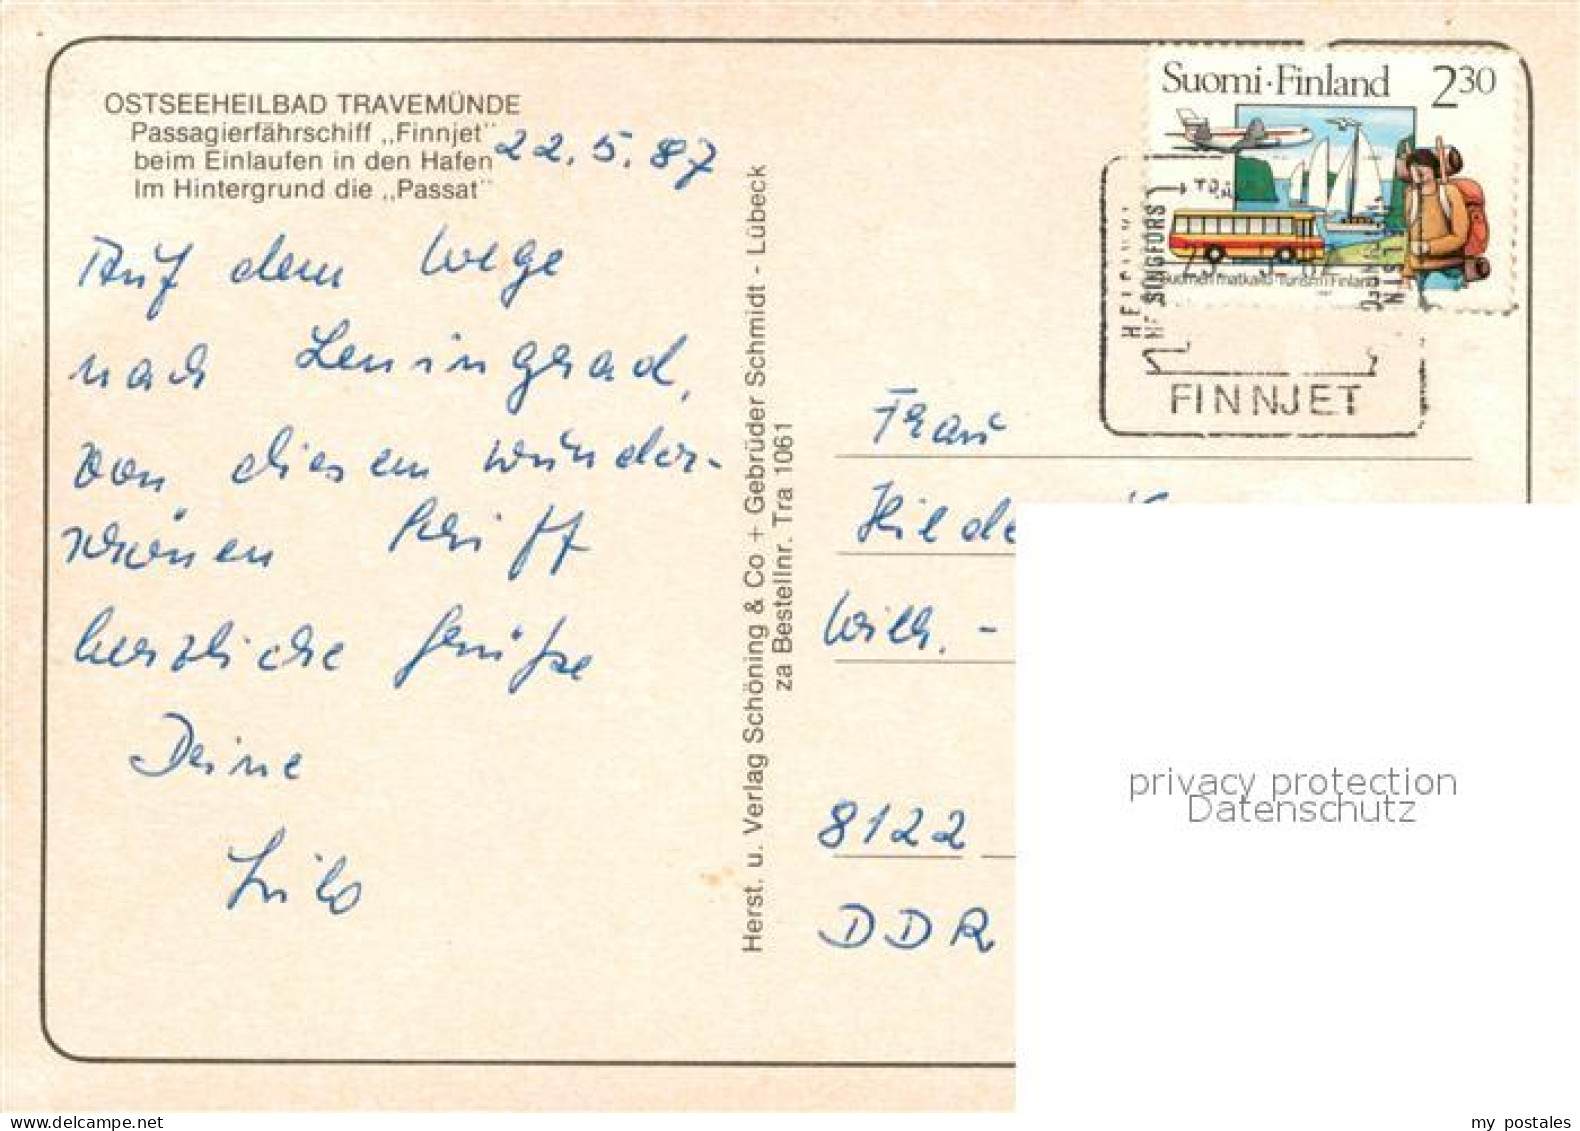 OSTSEEHEILBAD TRAVEMÜNDE
Passagierfährschiff „Finnjet"
beim Einlaufen in den Hafen
Im Hintergrund die „Passat"
22.5.87
Auf dem Wege
nach Leningrad,
von diesem wunder-
schönen Schiff
herzliche Grüße
Deine
Lilo
Herst. u. Verlag Schöning & Co + Gebrüder Schmidt - Lübeck
za Bestellnr. Tra 1061
Suomi·Finland 2 30
Suomen matkailu·Turism i Finland
HELSINKI
HELSINGFORS
FINNJET
Frau
Hilde
Wilh.-
8122
DDR
privacy protection
Datenschutz
my postales